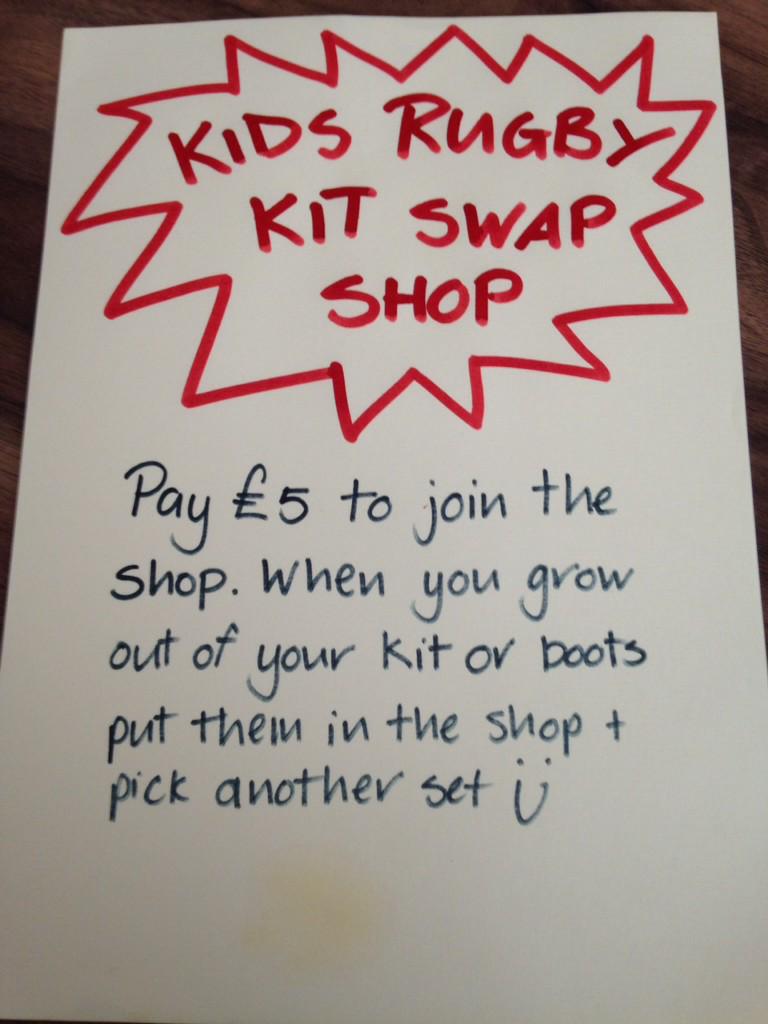 KIDS RUGBY
KIT SWAP
SHOP
Pay £5 to join the
shop. When you grow
out of your kit or boots
put them in the shop +
pick another set ü